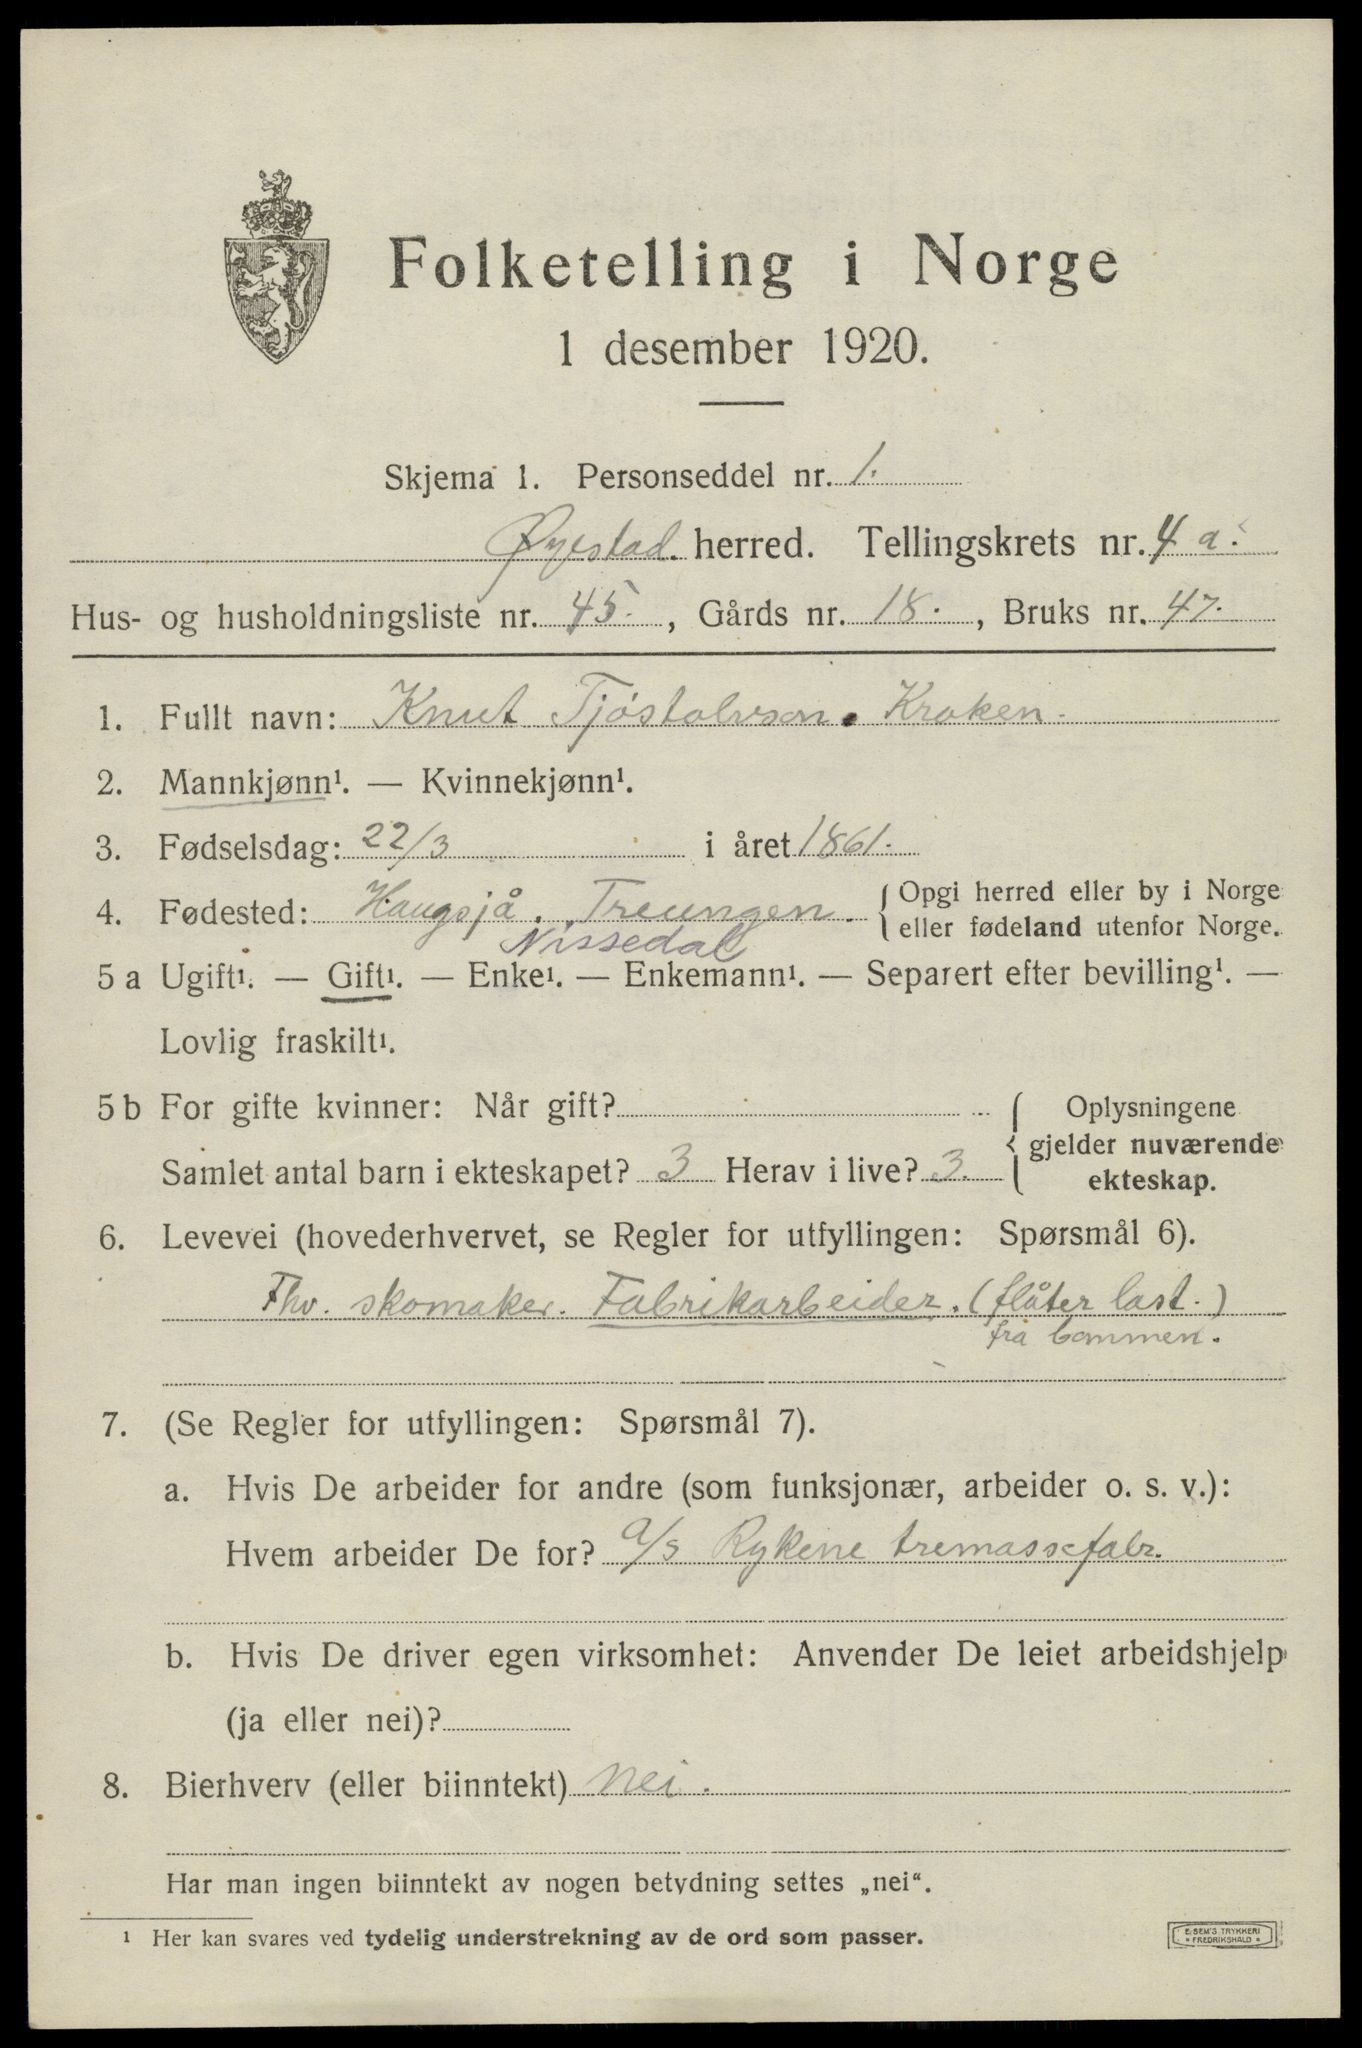 Folketelling i Norge
1 desember 1920.
Skjema 1. Personseddel nr. 1.
Øyestad herred. Tellingskrets nr. 4 a.
Hus- og husholdningsliste nr. 45. , Gårds nr. 18. , Bruks nr. 47.
1. Fullt navn: Knut Tjöstolvson. Kroken.
2. Mannkjønn¹. — Kvinnekjønn¹.
3. Fødselsdag: 22/3 i året 1861.
4. Fødested: Haugsjå. Treungen. { Opgi herred eller by i Norge
eller fødeland utenfor Norge.
Nissedal
5 a Ugift¹. — Gift¹. — Enke¹. — Enkemann¹. — Separert efter bevilling¹. —
Lovlig fraskilt¹.
5 b For gifte kvinner: Når gift? { Oplysningene
gjelder nuværende
Samlet antal barn i ekteskapet? 3 Herav i live? 3.
ekteskap.
6. Levevei (hovederhvervet, se Regler for utfyllingen: Spørsmål 6).
Fhv. skomaker. Fabrikarbeider. (flåter last.)
fra bommen.
7. (Se Regler for utfyllingen: Spørsmål 7).
a. Hvis De arbeider for andre (som funksjonær, arbeider o. s. v.):
Hvem arbeider De for? a/s Rykene tremassefabr.
b. Hvis De driver egen virksomhet: Anvender De leiet arbeidshjelp
(ja eller nei)?
8. Bierhverv (eller biinntekt) nei.
Har man ingen biinntekt av nogen betydning settes „nei“.
¹ Her kan svares ved tydelig understrekning av de ord som passer.
E. SEM'S TRYKKERI
* FREDRIKSHALD *